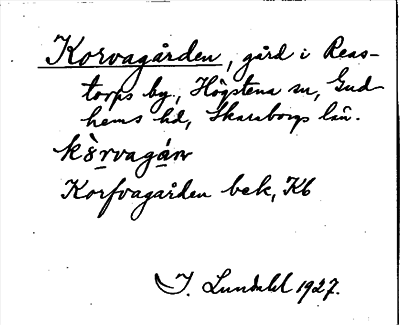 Korvagården, gård i Reas-
torps by, Högstena sn, Gud-
hems hd, Skaraborgs län.
Korfvagården bek, Kb
I. Lundahl 1927.